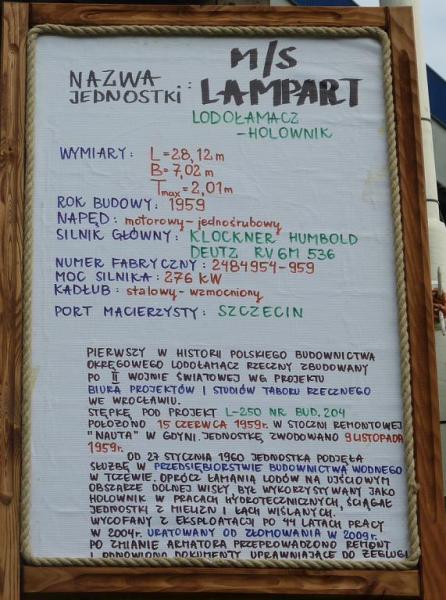 NAZWA JEDNOSTKI: M/S LAMPART
LODOŁAMACZ
-HOLOWNIK
WYMIARY: L=28,12m
B=7,02m
Tmax=2,01m
ROK BUDOWY: 1959
NAPĘD: motorowy-jednośrubowy
SILNIK GŁÓWNY: KLOCKNER HUMBOLD
DEUTZ RV6M 536
NUMER FABRYCZNY: 2484954-959
MOC SILNIKA: 276 KW
KADŁUB: stalowy-wzmocniony
PORT MACIERZYSTY: SZCZECIN
PIERWSZY W HISTORII POLSKIEGO BUDOWNICTWA
OKRĘGOWEGO LODOŁAMACZ RZECZNY ZBUDOWANY
PO II WOJNIE ŚWIATOWEJ WG PROJEKTU
BIURA PROJEKTÓW I STUDIÓW TABORU RZECZNEGO
WE WROCŁAWIU.
STĘPKĘ POD PROJEKT L-250 NR BUD. 204
POŁOŻONO 15 CZERWCA 1959r. W STOCZNI REMONTOWEJ
"NAUTA" W GDYNI. JEDNOSTKĘ ZWODOWANO 9 LISTOPADA
1959r.
OD 27 STYCZNIA 1960 JEDNOSTKA PODJĘŁA
SŁUŻBĘ W PRZEDSIĘBIORSTWIE BUDOWNICTWA WODNEGO
W TCZEWIE. OPRÓCZ ŁAMANIA LODÓW NA UJŚCIOWYM
OBSZARZE DOLNEJ WISŁY BYŁ WYKORZYSTYWANY JAKO
HOLOWNIK W PRACACH HYDROTECHNICZNYCH, ŚCIĄGAŁ
JEDNOSTKI Z MIELIZN I ŁACH WIŚLANYCH.
WYCOFANY Z EKSPLOATACJI PO 44 LATACH PRACY
W 2004r. URATOWANY OD ZŁOMOWANIA W 2009r.
PO ZMIANIE ARMATORA PRZEPROWADZONO REMONT
I ODNOWIONO DOKUMENTY UPRAWNIAJĄCE DO ŻEGLUGI